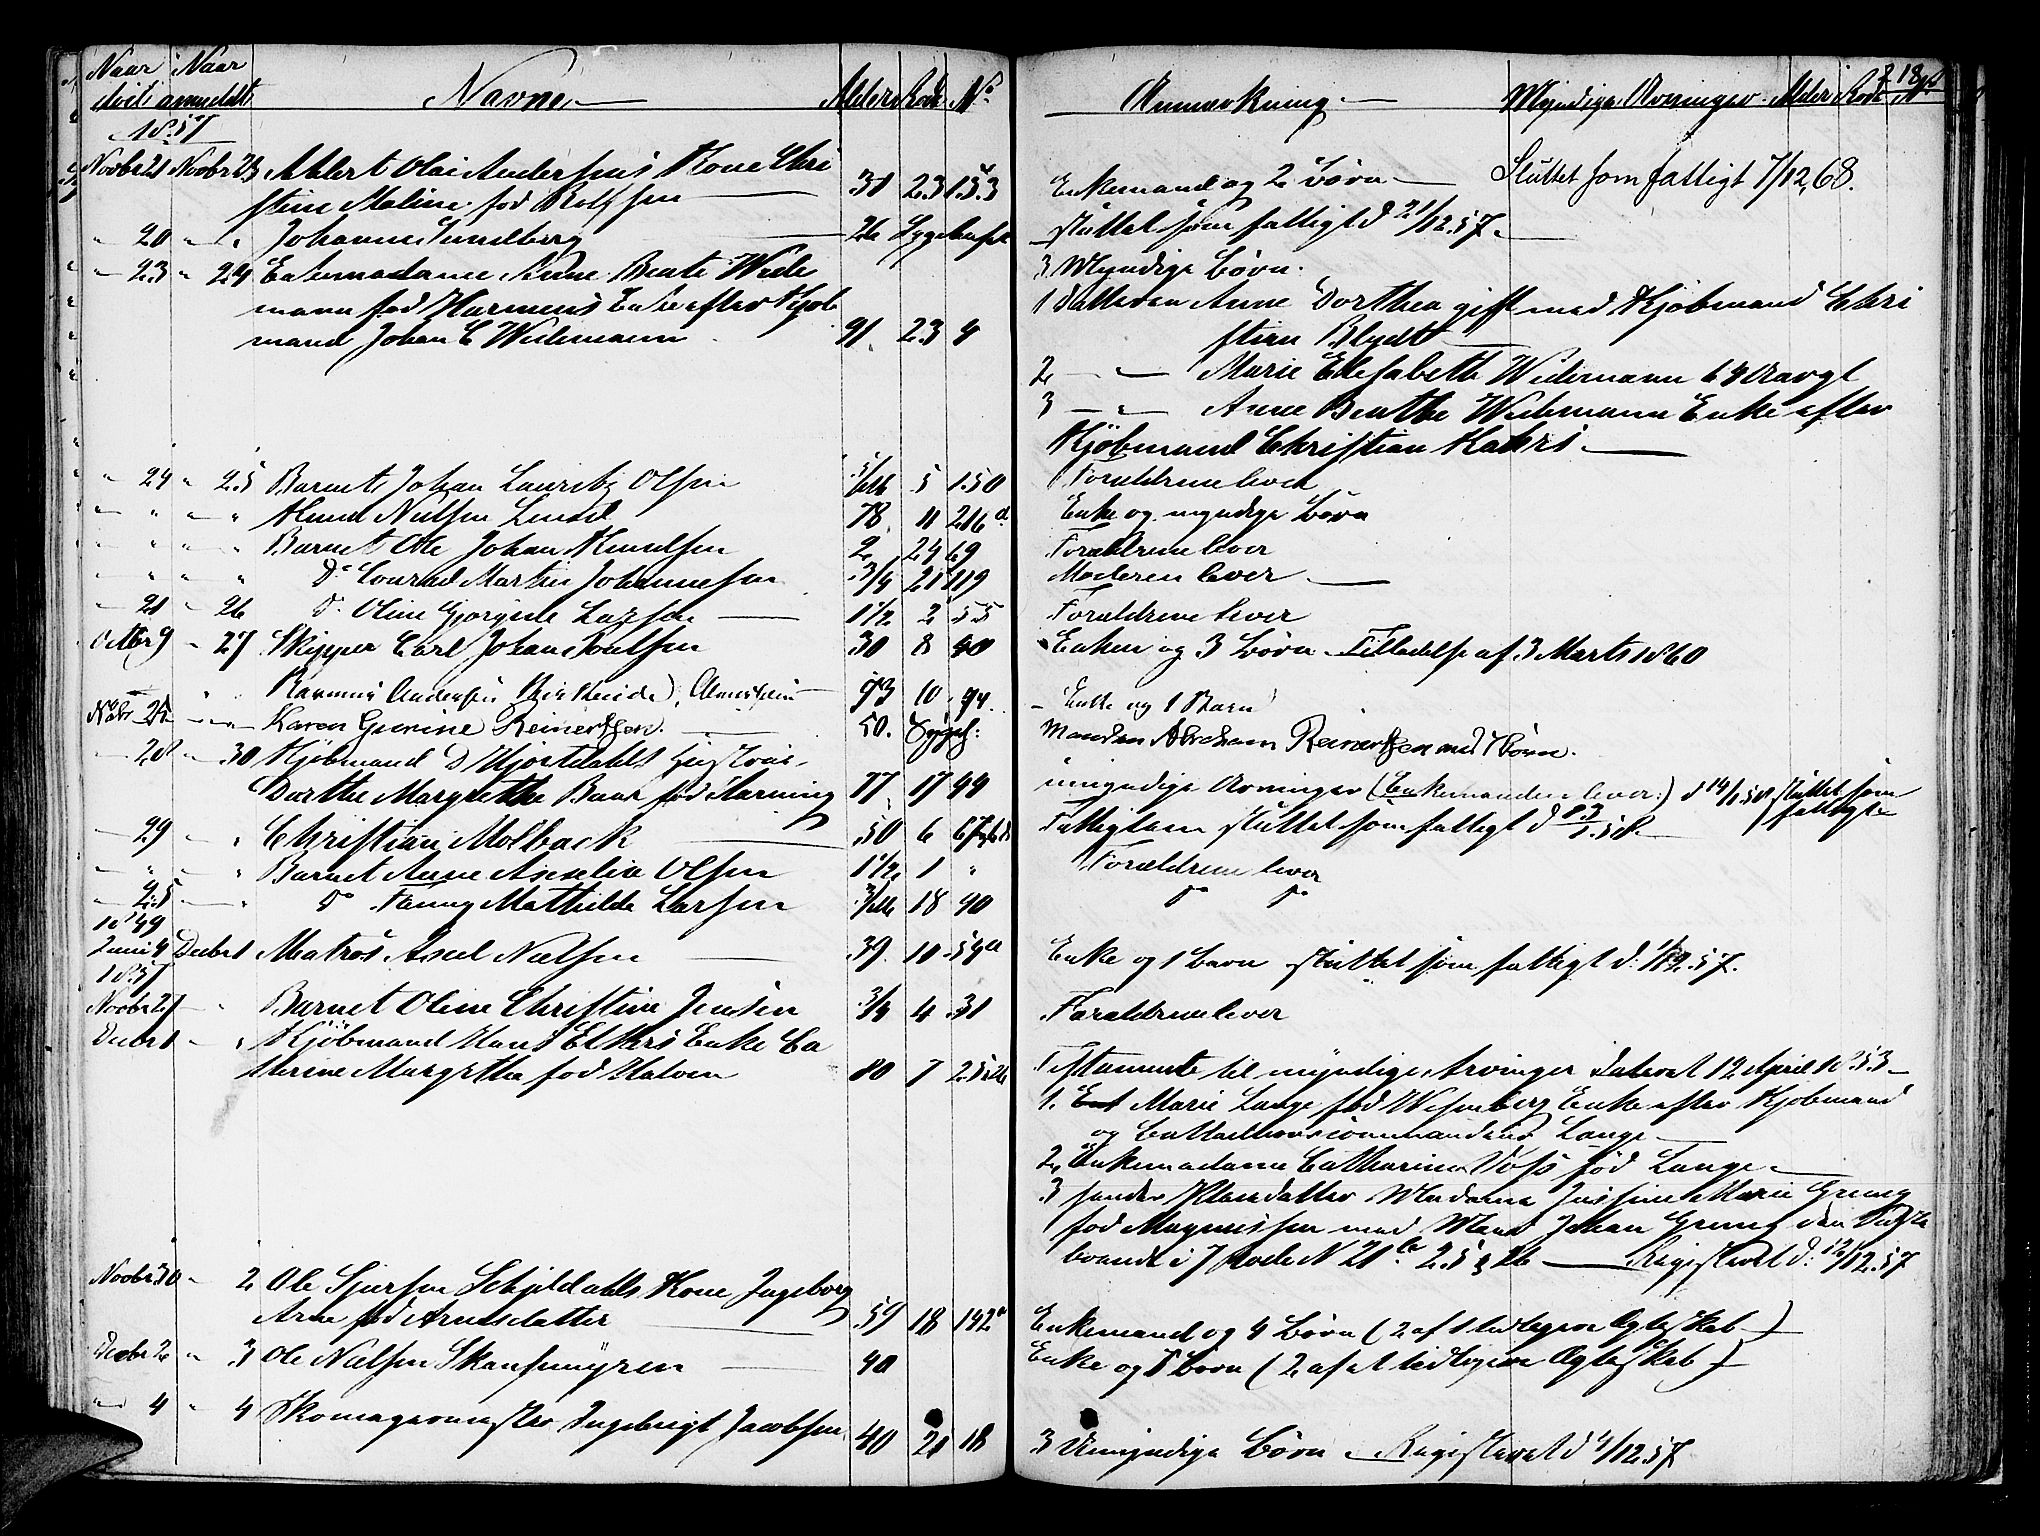 Naar Naar
død anmeldt Navne Alder Rode No
1857
Novbr 21 Novbr 23 Ahlert Olai Andersens Kone Chri
stine Maline fød Rolfsen 31 23 153
" 20 " " Johanne Sundberg 26 Sygehuset
" 23 " 24 Enkemadame Anne Beate Wide
mann fød Harmens Enke efter Kjøb
mand Johan C Widemann 91 23 4
" 24 " 25 Barnet Johan Lauritz Olsen 5 150
" " " " Nielsen 78 11 216 a
" " " " Barnet Ole Johan Knudsen 2 24 69
" " " " Do Conrad Martin Johannesen 3/4 21 119
" 21 " 26 Do Oline Gjorgine Larsen 1 1/2 2 55
Octbr 9 " 27 Skipper Carl Johan Poulsen 30 8 40
" " Rasmus Andersen 73 10 94
Nobr 25 " " Karen Gurine Reinertsen. 50. Sygeh:
" 28 " 30 Kjøbmand D Hjortdahls Hustrue
Dorthe Margrethe Baar fød Harming 77 17 44
" 29 " " Christian Molback 50 6
" " " " Barnet Anne Amalia Olsen 1 1/2 1 "
" 25 " " Do Fanny Mathilde Larsen 18 40
1849
Juni 4 Decbr 1 Matros Axel Nielsen 39 10 54 a
1857
Novbr 27 " Barnet Oline Christine Jensen 3/4 4 31
Decbr 1 " " Kjøbmand Hans Elkers Enke Ca
thrine Margretha fød Halven 80 7 25 & 26
Novbr 30 " 2 Ole Sjursen Schjeldahls Kone Ingeborg
Arne fød Arnesdatter 59 18 142 a
Decbr 2 " 3 Ole Nielsen Skansemyren 40
" 4 " 4 Skomagermester Ingebrigt Jacobsen 40 21 18
218
Anmærkning Myndige Arvinger Alder Rode No
Enkemand og 2 Børn Sluttet som fattigt 7/12,68.
sluttet som fattigt d 21/12.57.
3 Myndige Børn.
1 Datteren Anne Dorthea gift med Kjøbmand Chri
stian Blydt
2 " Marie Elisabeth Widemann 64 Aargl
3 " Anne Benthe Widemann Enke efter
Kjøbmand Christian Kahrs
Forældrene lever
Enke og myndige Børn
Forældrene lever
Moderen lever
Forældrene lever
Enken og 3 Børn Tilladelse af 3 Marts 1860
Enke og 1 Barn
Manden Abraham Reinertsen med Børn.
umyndige Arvinger (Enkemanden lever:) d 14/1.58 sluttet som
fattigt
Fattiglem sluttet som fattigt d 23/1.58
Forældrene lever
Do Do
Enke og 1 barn sluttet som fattigt d. 1/12.57.
Forældrene lever
Testamente til myndige Arvinger dateret 12 April 1853
1. Marie Lange fød Wesenberg Enke efter Kjøbmand
og Lange
2 Enkemadame Catharine Voss fød Lange
3 sendes Pleiedatter Madame Justine Marie Grung
fød Magnussen med Mand Johan Grung den Sidste
boende i 7 Rode N 21 b 25 & 26 Registeret d. 12/12.57
Enkemand og 4 Børn (2 af 1 tidligere Ægteskab)
Enke og 5 Børn (2 af et tidligere Ægteskab)
3 Umyndige Børn Registeret d 4/12.57